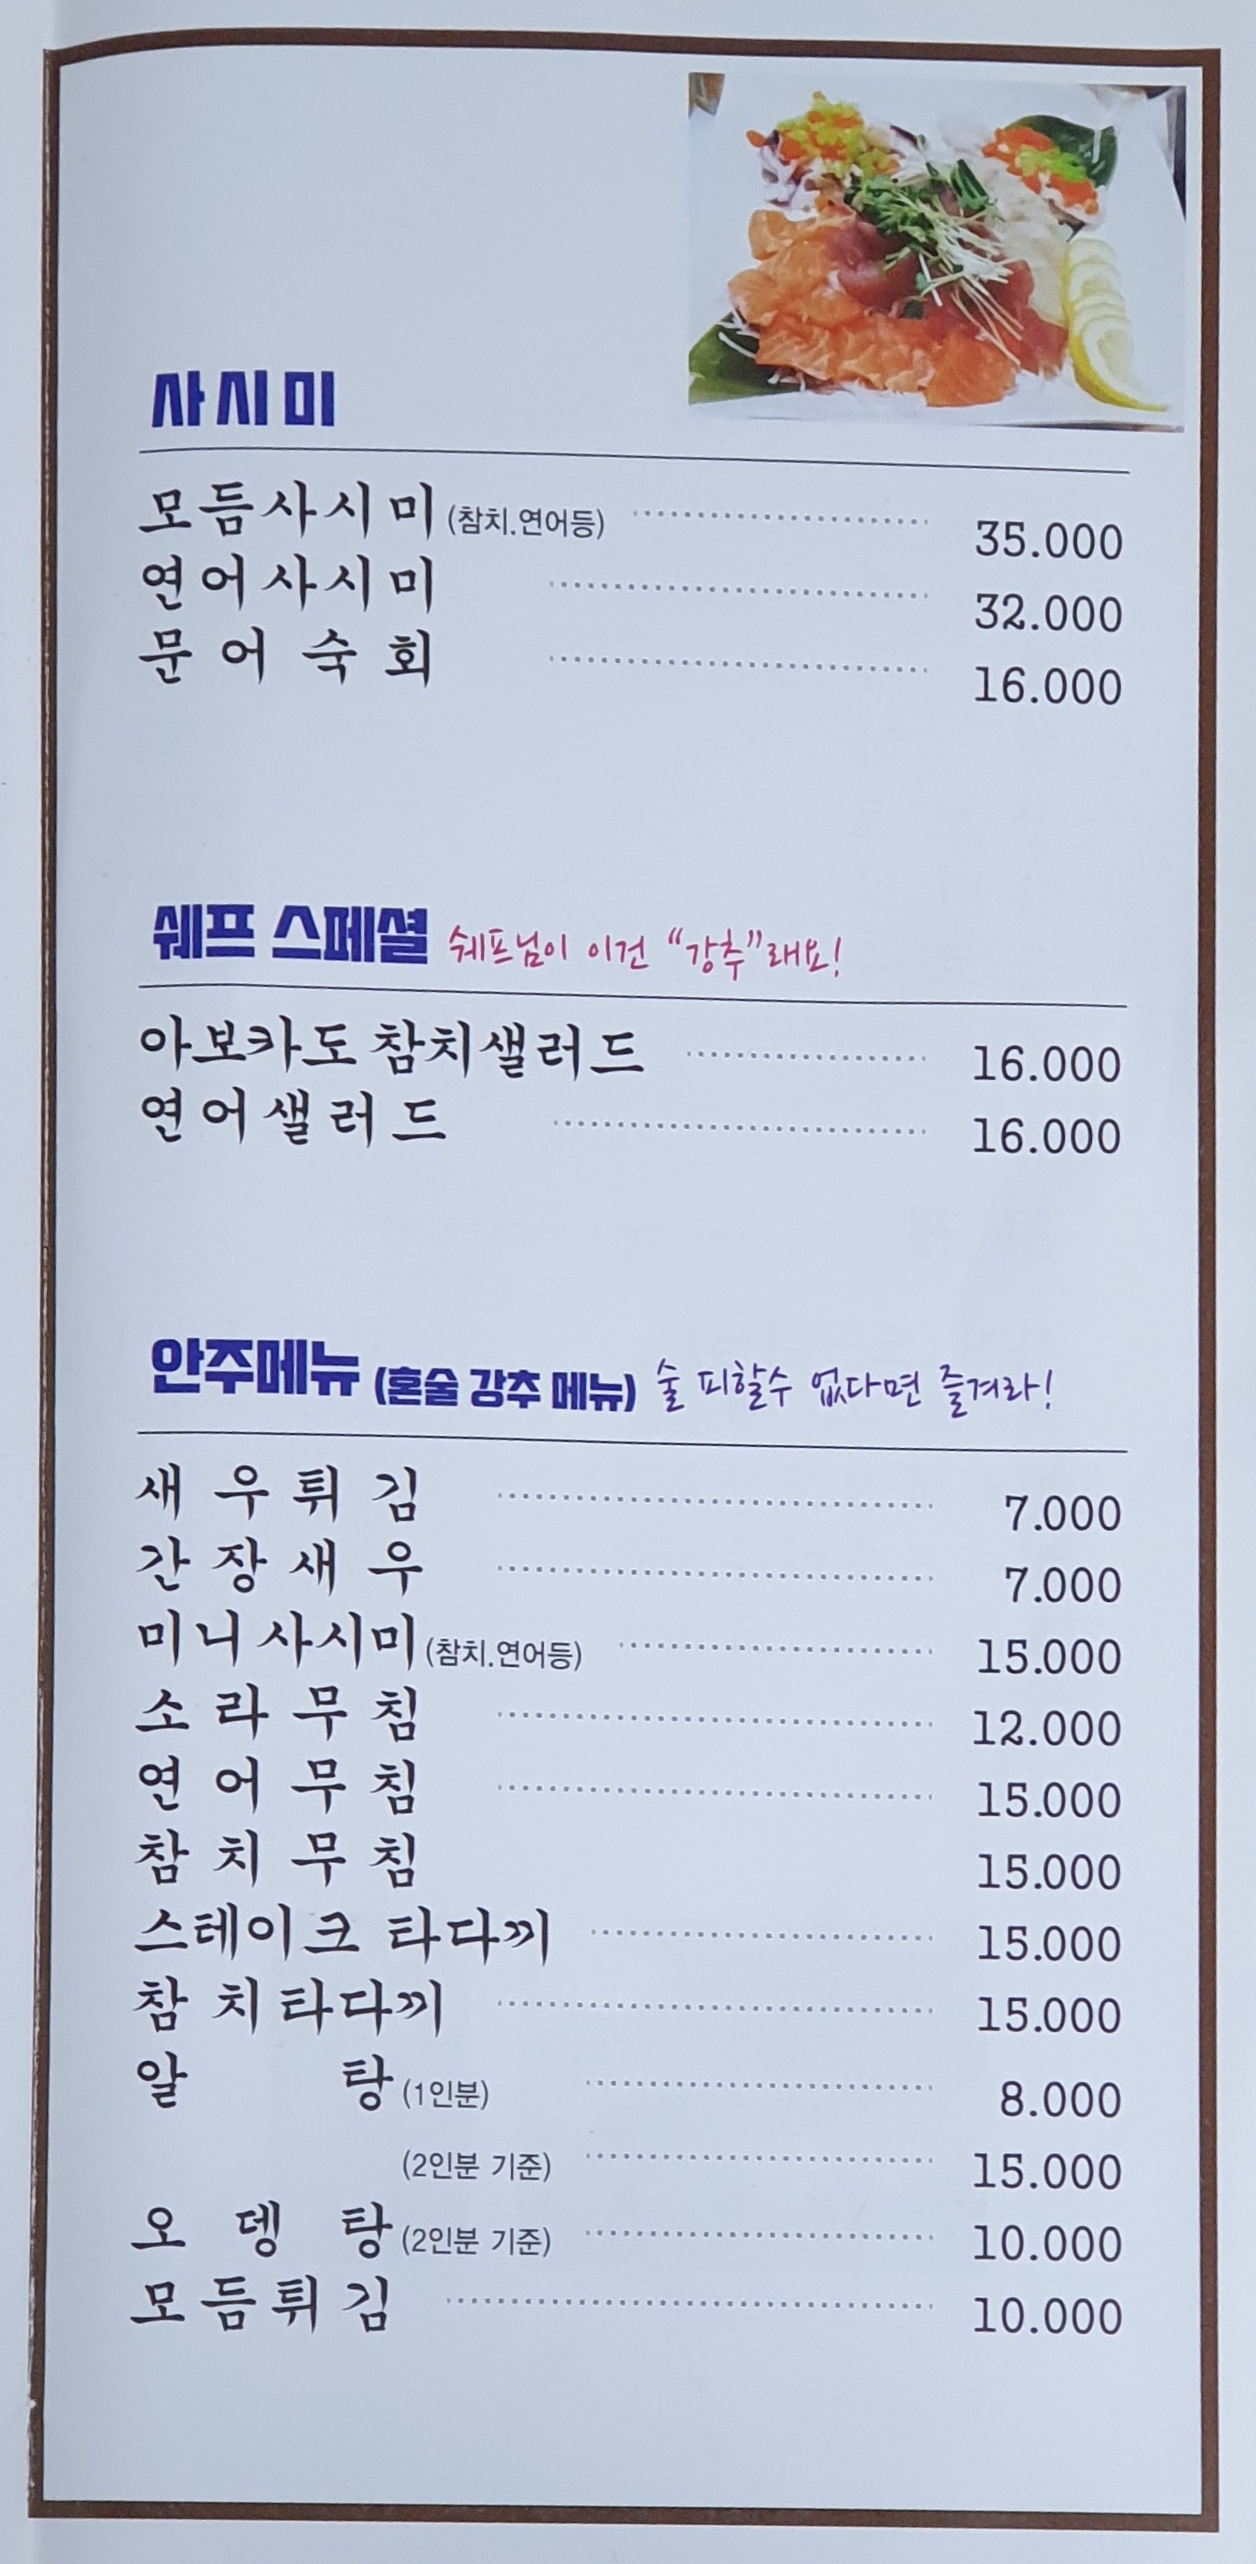 사시미
모듬사시미(참치.연어등) 35.000
연어사시미 32.000
문어숙회 16.000
쉐프 스페셜 쉐프님이 이건 “강추”래요!
아보카도 참치샐러드 16.000
연어샐러드 16.000
안주메뉴 (혼술 강추 메뉴) 술 피할수 없다면 즐겨라!
새우튀김 7.000
간장새우 7.000
미니사시미(참치.연어등) 15.000
소라무침 12.000
연어무침 15.000
참치무침 15.000
스테이크 타다끼 15.000
참치타다끼 15.000
알탕(1인분) 8.000
(2인분 기준) 15.000
오뎅탕(2인분 기준) 10.000
모듬튀김 10.000